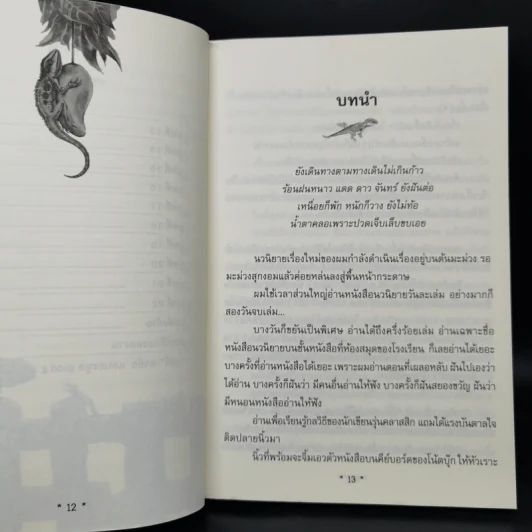 บทนำ
ยังเดินทางตามทางเดินไม่เกินก้าว
ร้อนฝนหนาว แดด ดาว จันทร์ ยังฝันต่อ
เหนื่อยก็พัก หนักก็วาง ยังไม่ท้อ
น้ำตาคลอเพราะปวดเจ็บเล็บขบเอย
นวนิยายเรื่องใหม่ของผมกำลังดำเนินเรื่องอยู่บนต้นมะม่วง รอ
มะม่วงสุกงอมแล้วค่อยหล่นลงสู่พื้นหน้ากระดาษ
ผมใช้เวลาส่วนใหญ่อ่านหนังสือนวนิยายวันละเล่ม อย่างมากก็
สองวันจบเล่ม...
บางวันก็ขยันเป็นพิเศษ อ่านได้ถึงครึ่งร้อยเล่ม อ่านเฉพาะชื่อ
หนังสือนวนิยายบนชั้นหนังสือที่ห้องสมุดของโรงเรียน ก็เลยอ่านได้เยอะ
บางครั้งที่อ่านหนังสือได้เยอะ เพราะผมอ่านตอนที่เผลอหลับ ฝันไปเองว่า
ได้อ่าน บางครั้งก็ฝันว่า มีคนยื่นอ่านให้ฟัง บางครั้งก็ฝันสยองขวัญ ฝันว่า
มีหนอนหนังสืออ่านให้ฟัง
อ่านเพื่อเรียนรู้กลวิธีของนักเขียนรุ่นคลาสสิก แถมได้แรงบันดาลใจ
ติดปลายนิ้วมา
นิ้วที่พร้อมจะจิ้มเอวตัวหนังสือบนคีย์บอร์ดของโน้ตบุ๊ก ให้หัวเราะ
* 12 *
* 13 *